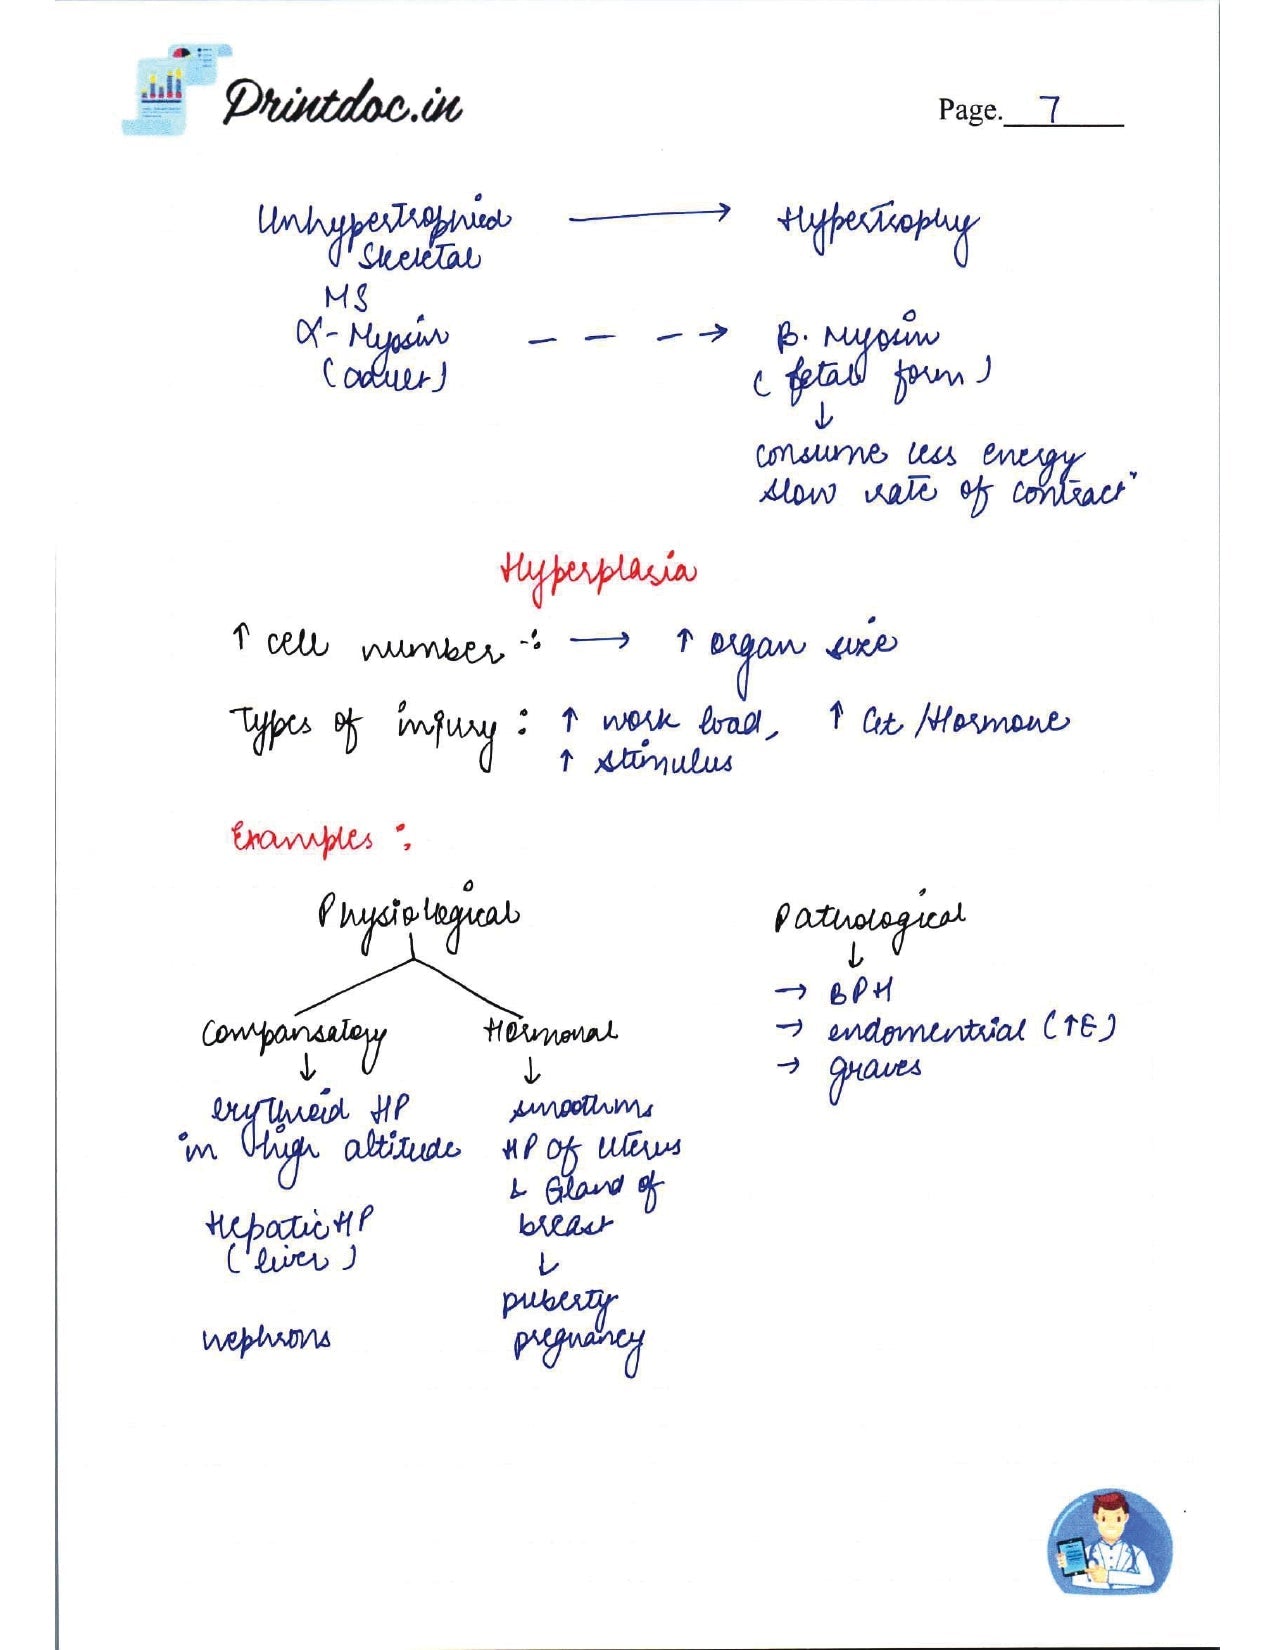 Printdoc.in
Page. 7
Unhypertrophied → Hypertrophy
Skeletal
MS
α-Myosin - - - → β. Myosin
(adult) (fetal form)
↓
consume less energy
slow rate of contractⁿ
Hyperplasia
↑ cell number -: → ↑ organ size
Types of injury : ↑ work load, ↑ Get /Hormone
↑ stimulus
Examples :
Physiological
Pathological
↓
→ BPH
→ endomentrial (↑E)
→ graves
Compansatory
↓
erythroid HP
in high altitude
Hepatic HP
(liver)
nephrons
Hormonal
↓
smooth ms
HP of uterus
& Gland of
breast
↓
puberty
pregnancy